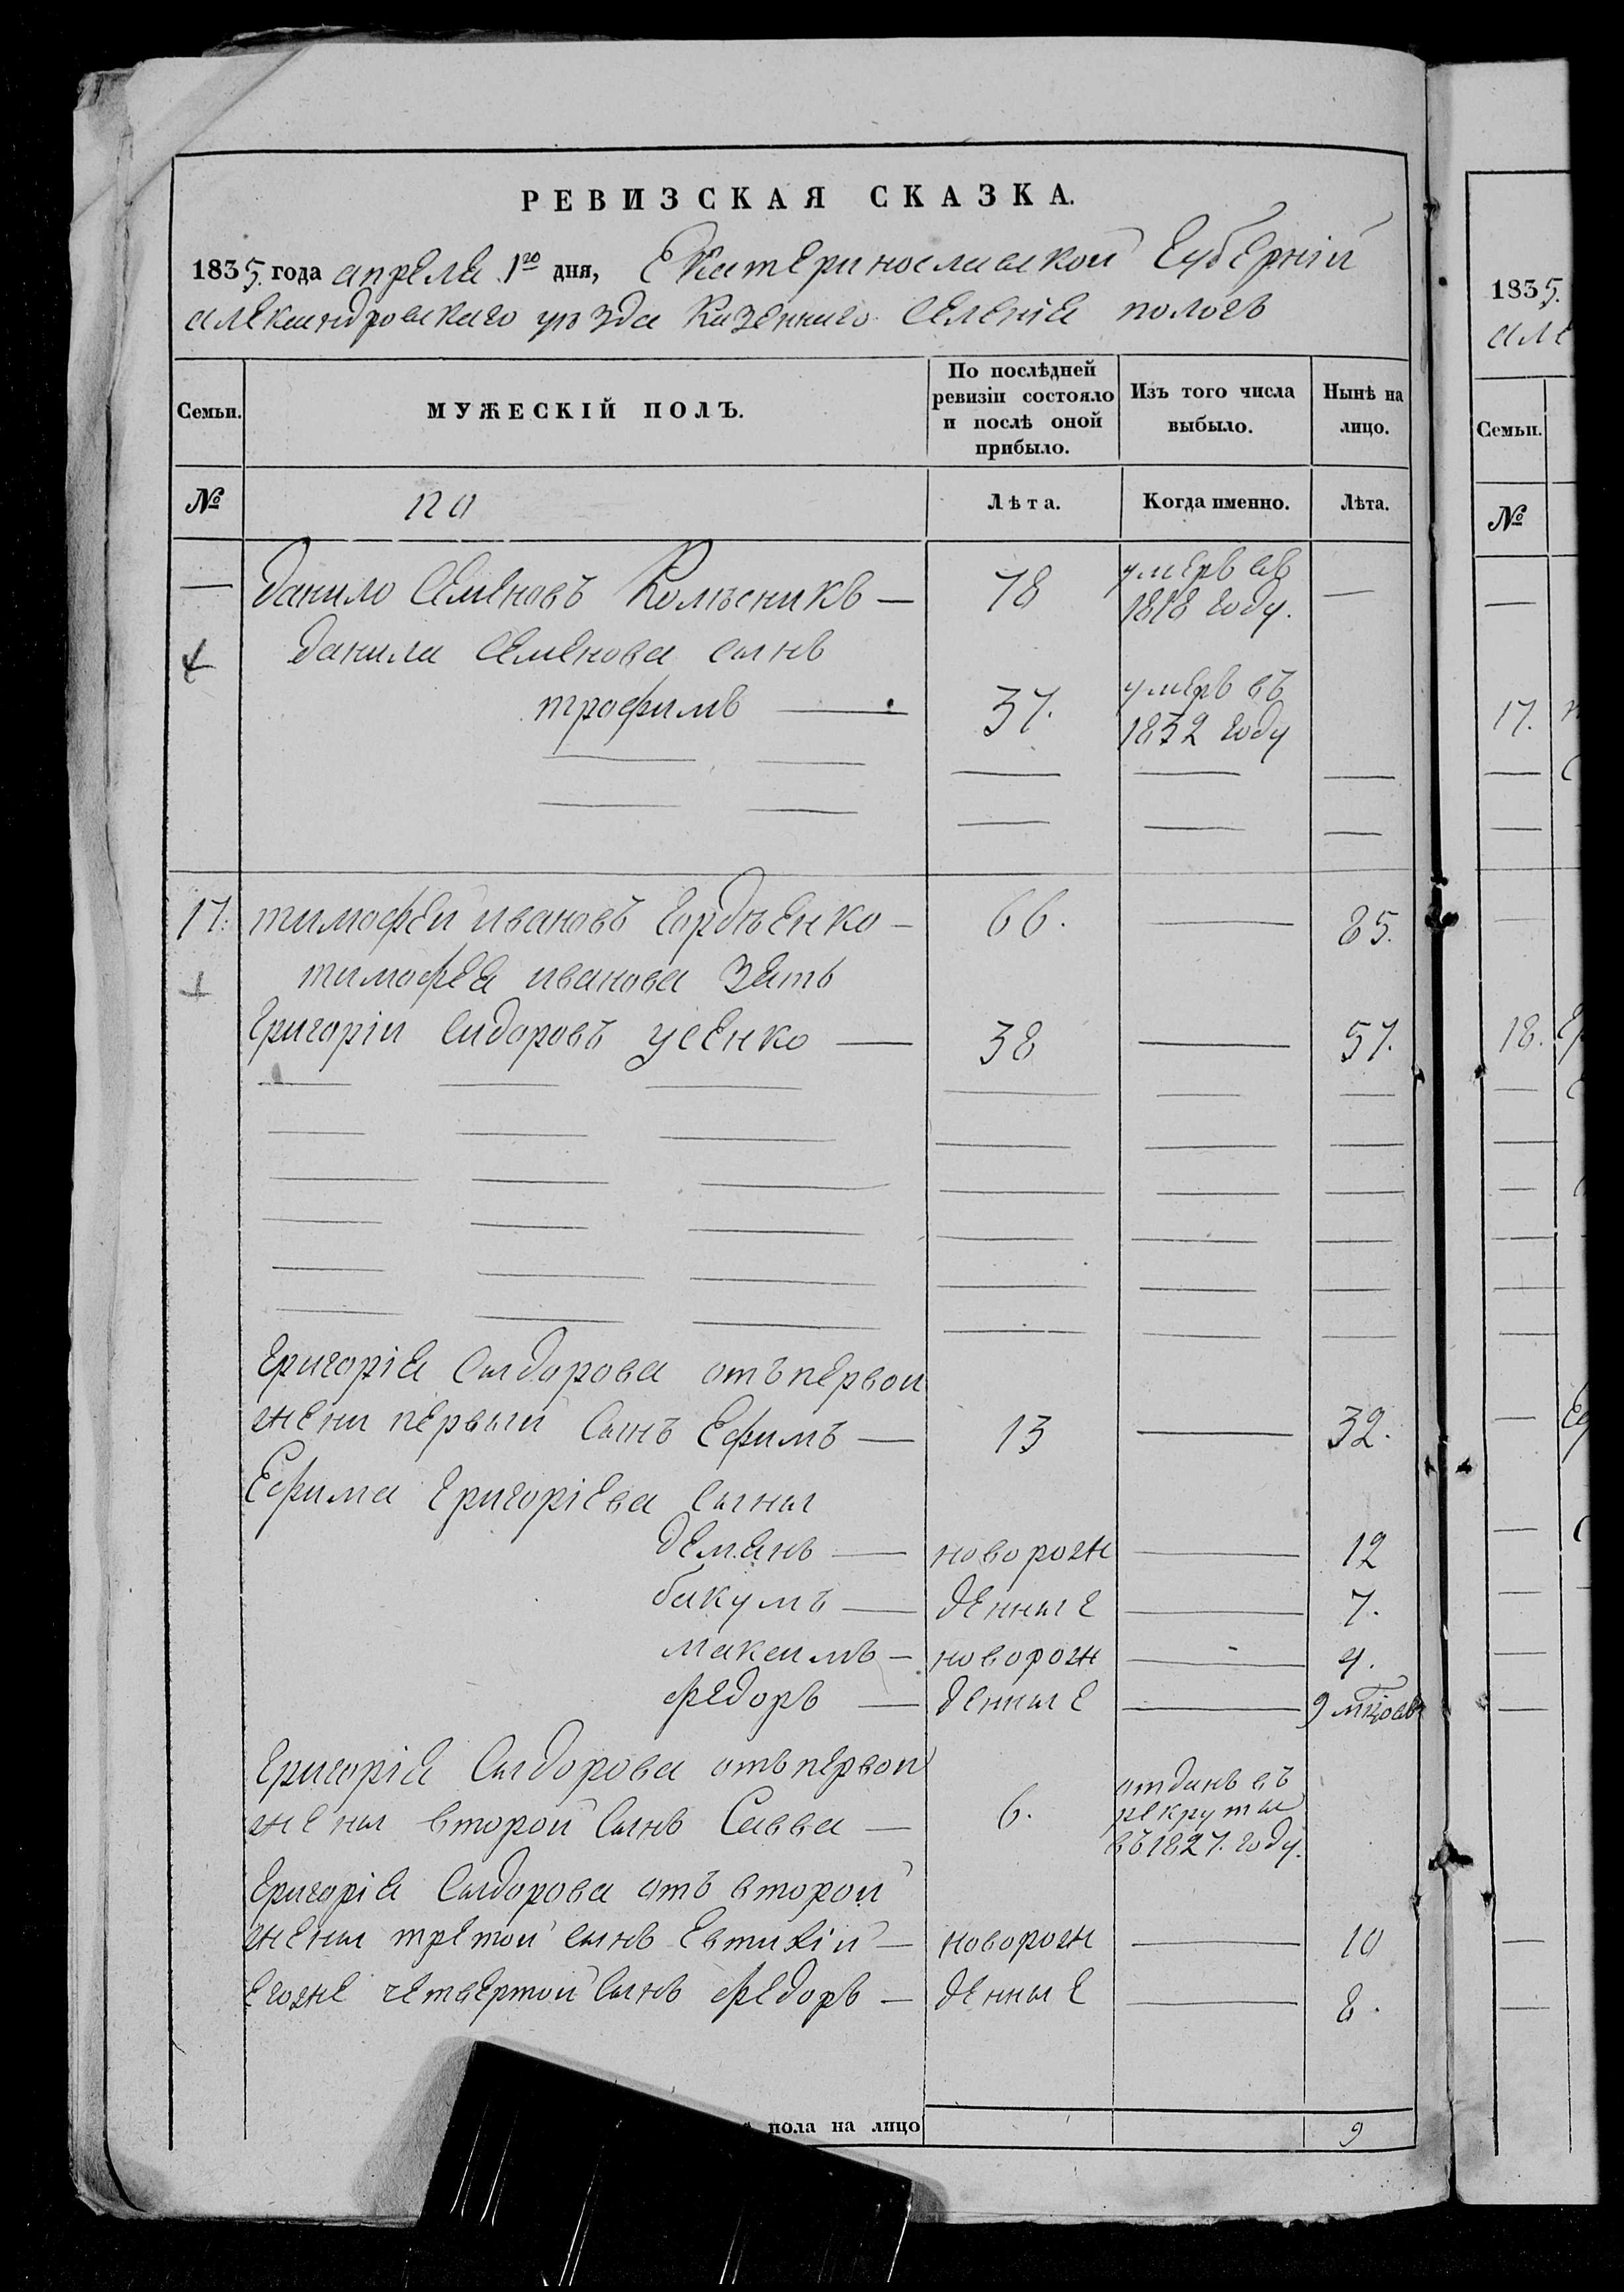 РЕВИЗСКАЯ СКАЗКА.
1835. года апреля 1го дня, Екатеринославской Губерній
александровскаго уѣзда Казеннаго Селенія пологъ
Семьи.
МУЖЕСКІЙ ПОЛЪ.
По послѣдней ревизіи состояло и послѣ оной прибыло.
Изъ того числа выбыло.
Нынѣ на лицо.
№
Лѣта.
Когда именно.
Лѣта.
— данило Семеновъ Колѣсникъ — 78 умеръ въ 1818 году. —
данила Семенова сынъ
трофимъ — 37. умеръ въ 1832 году
17. тимофей ивановъ Гордѣенко — 66. — 85.
тимофея иванова Зять
Григоріи Сидоровъ усенко — 38 — 57.
Григорія Сыдорова отъ первои
жени первыи Сынъ Ефимъ — 13 — 32.
Ефима Григоріева Сыны
демянъ — новорож — 12
бакумъ — денные — 7.
максимъ — новорож — 4.
федоръ — денные — 9 мцовъ
Григорія Сыдорова отъ первои
жены второй Сынъ Савва — 6. отданъ въ рекруты въ 1827. году.
Григорія Сыдорова отъ второй
жены третой сынъ Евтихій — новорож — 10
Егоже четвертой Сынъ федоръ — денные — 8.
пола на лицо 9
1835.
але
Семьи.
№
17.
18.